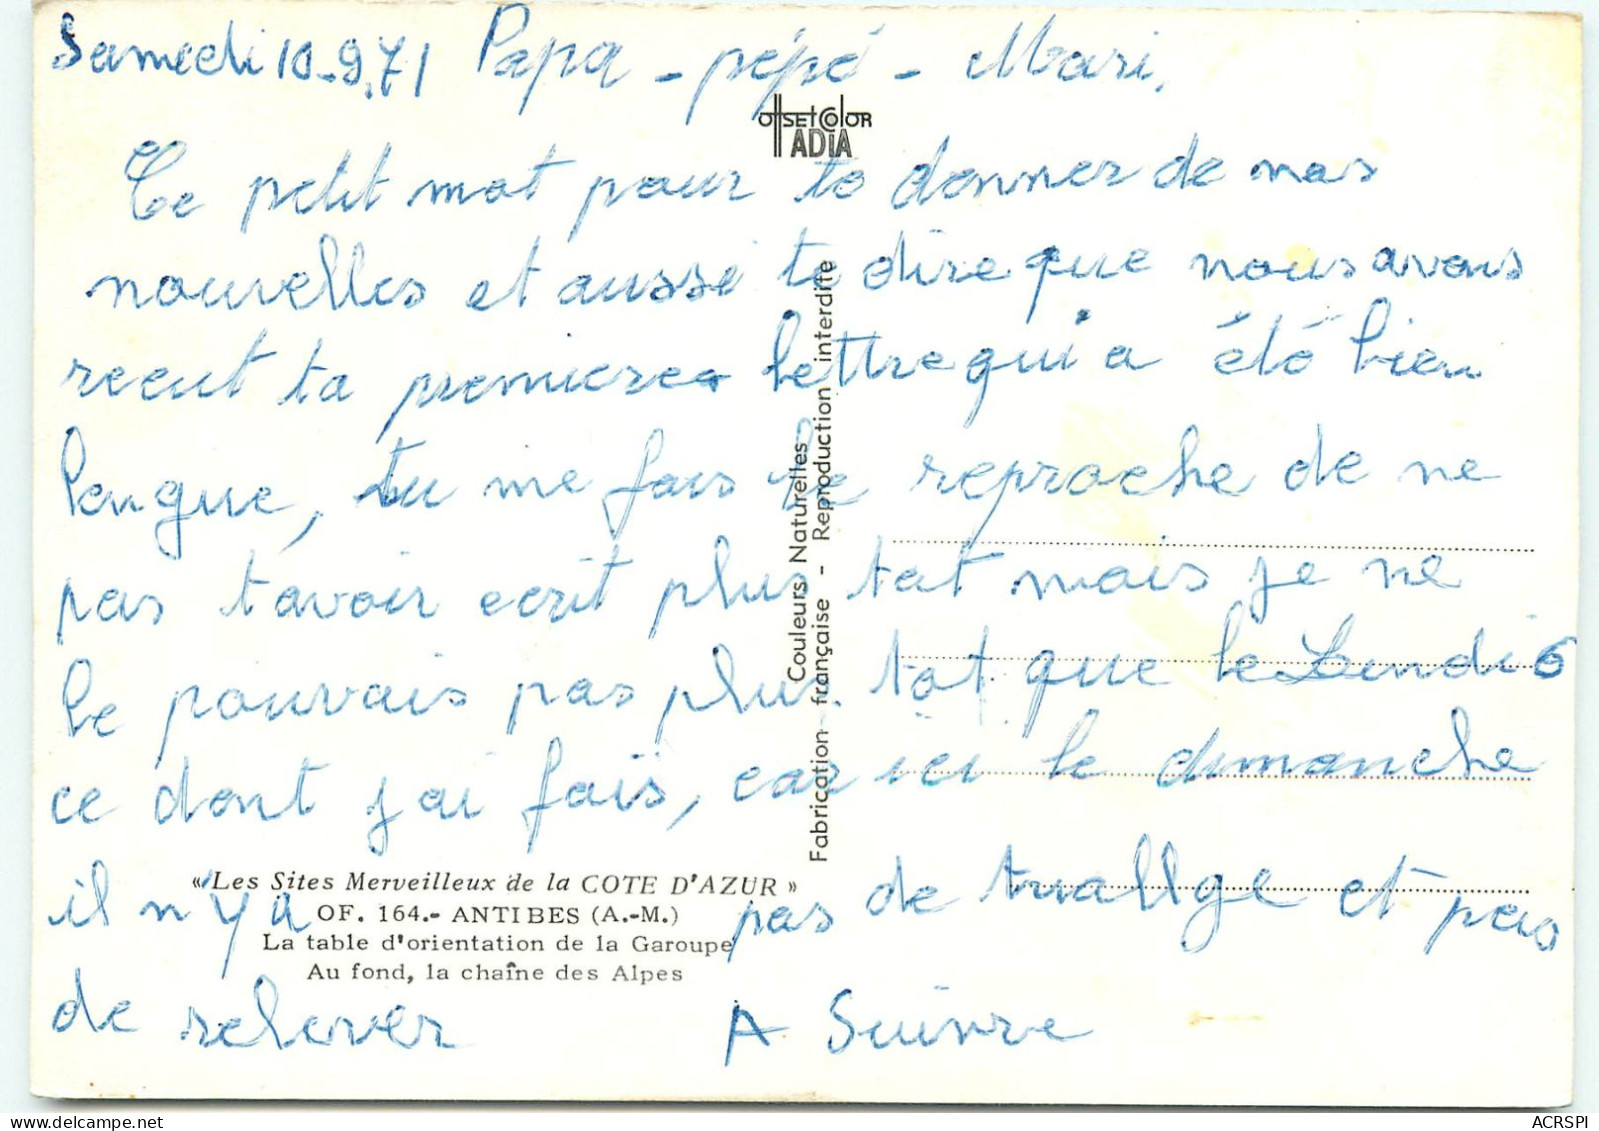 Samedi 10-9.71 Papa - pépé - Mari.
OffSEt ColOR
ADIA
Ce petit mot pour te donner de nos
nouvelles et aussi te dire que nous avons
recut ta premiere lettre qui a été bien
longue, tu me fais le reproche de ne
pas t'avoir ecrit plus tat mais je ne
le pouvais pas plus tot que le Lundi 6
ce dont j'ai fais, car ici le dimanche
il n'y a pas de tuallge et pas
de relever A Suivre
« Les Sites Merveilleux de la COTE D'AZUR »
OF. 164.- ANTIBES (A.-M.)
La table d'orientation de la Garoupe
Au fond, la chaîne des Alpes
Couleurs Naturelles
Fabrication française - Reproduction interdite
ACRSPI